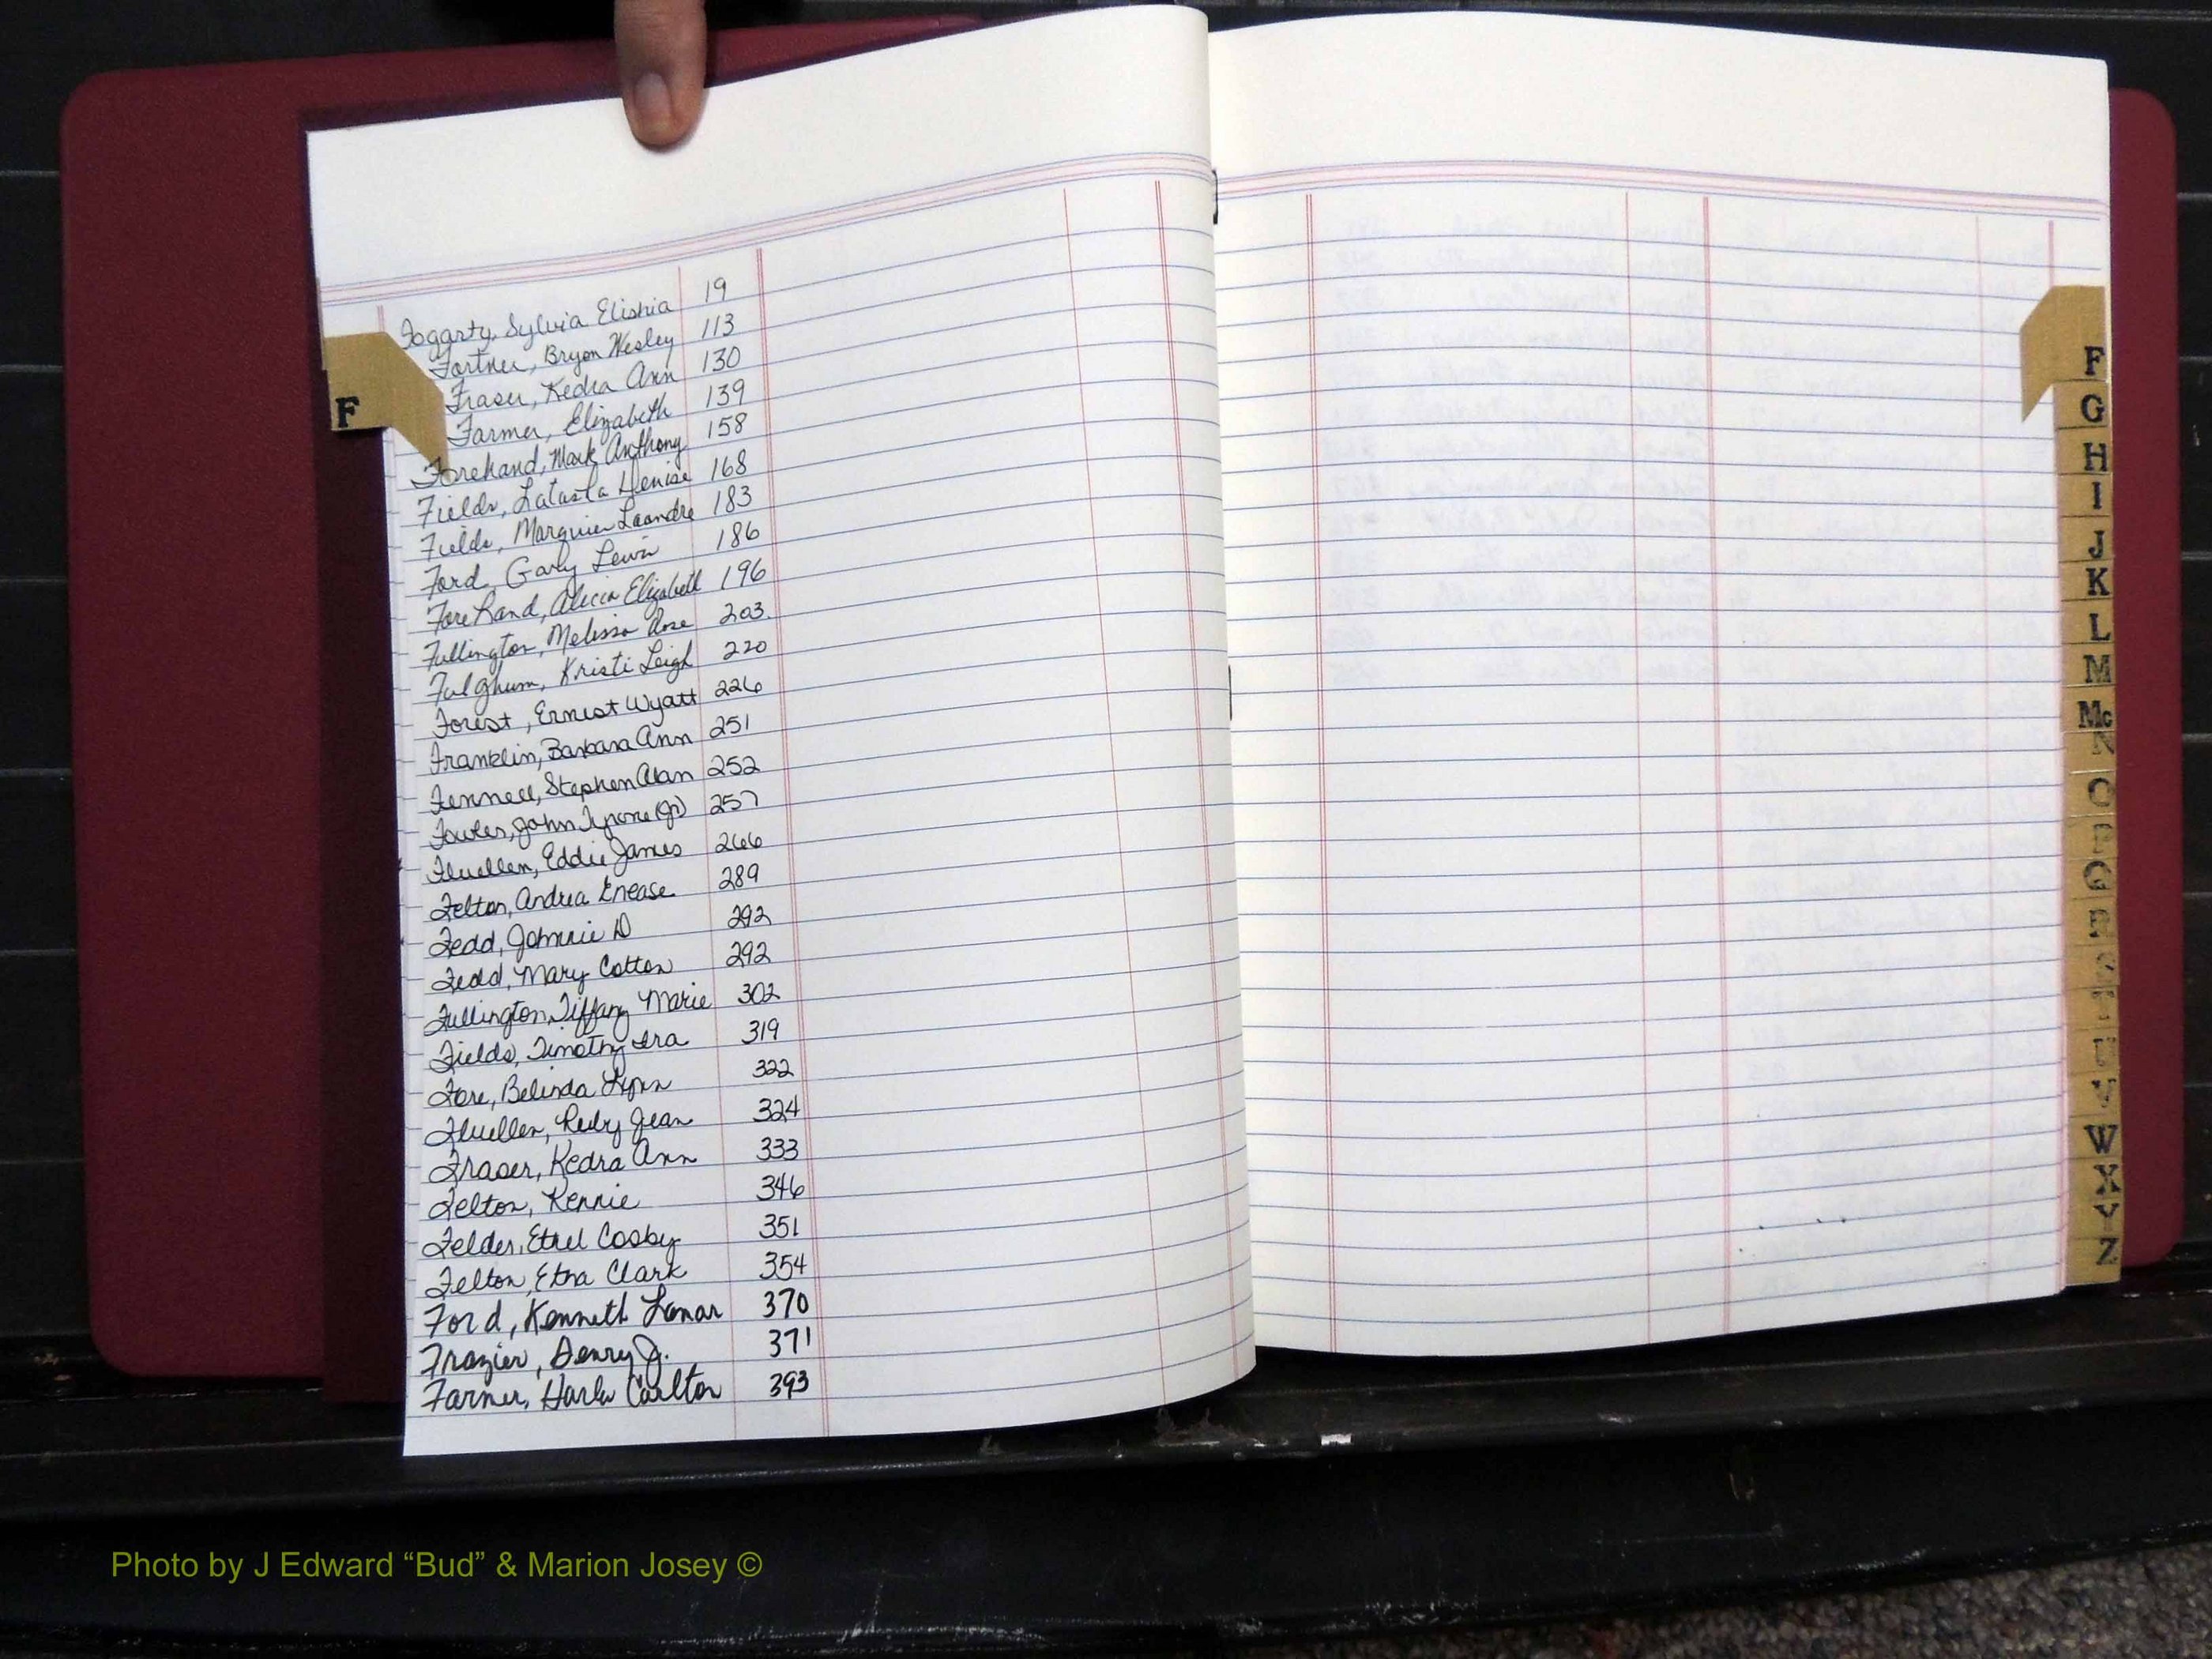 Fogarty, Sylvia Elishia 19
Fortner, Bryon Wesley 113
Fraser, Kedra Ann 130
Farmer, Elizabeth 139
Forehand, Mark Anthony 158
Fields, Latasta Denise 168
Fields, Marquies Leandre 183
Ford, Gary Lewis 186
Forehand, Alicia Elizabeth 196
Fullington, Melissa Rose 203
Fulghum, Kristi Leigh 220
Forest, Ernest Wyatt 226
Franklin, Barbara Ann 251
Fennell, Stephen Alan 252
Fowler, John Tyrone (Jr) 257
Fluellen, Eddie James 266
Felton, Andrea Enease 289
Fedd, Johnnie D 292
Fedd, Mary Cotton 292
Fullington, Tiffany Marie 302
Fields, Timothy Ira 319
Fore, Belinda Lynn 322
Fluellen, Ruby Jean 324
Fraser, Kedra Ann 333
Felton, Kennie 346
Felder, Ethel Cosby 351
Felton, Etha Clark 354
Ford, Kenneth Lamar 370
Frazier, Henry J. 371
Farmer, Carlton 393
F
F
G
H
I
J
K
L
M
Mc
N
O
P
Q
R
S
T
U
V
W
X
Y
Z
Photo by J Edward “Bud” & Marion Josey ©